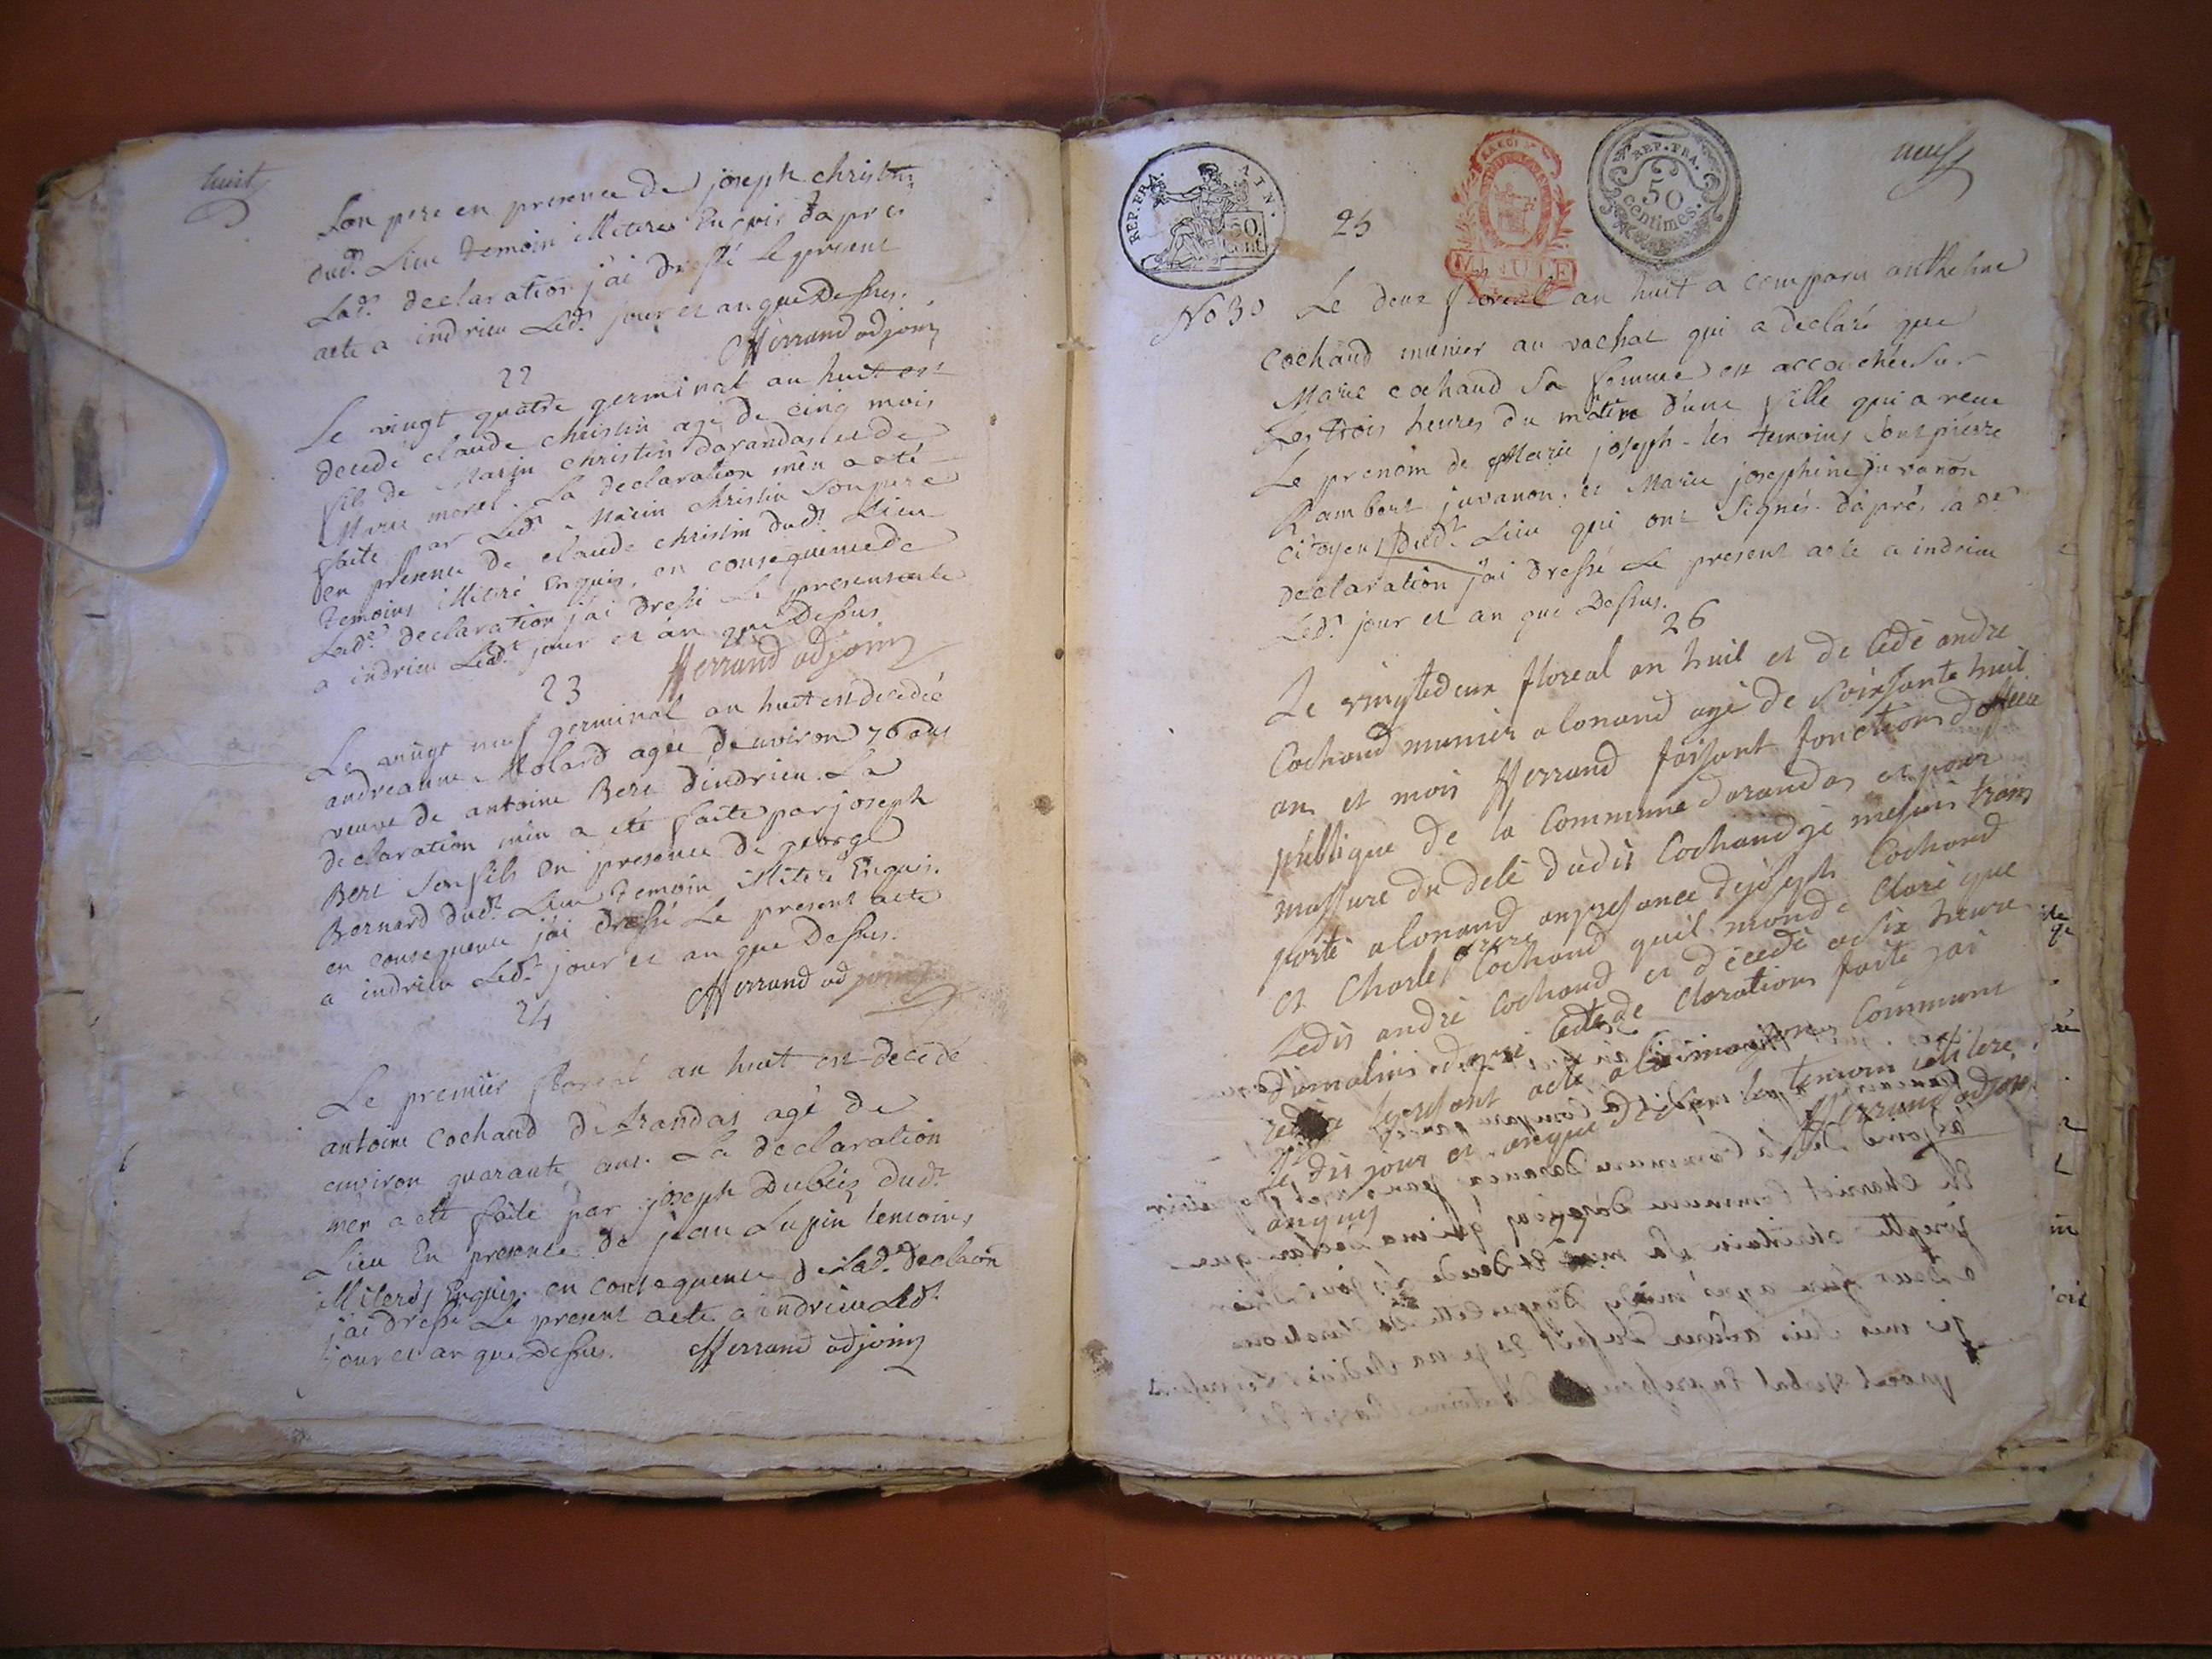 huit
Son pere en presence de joseph christin
dud.t Lieu temoin illiteres Enquis d'apres
Lad.e declaration j'ai dressé le present
acte a indrieu Led.t jour et an que Dessus.
Herrand adjoint
22
Le vingt quatre germinal an huit est
decedé claude christin agé de cinq mois
fils de Marin christin darandas et de
Marie morel. La declaration m'en a eté
faite par Led.t Marin christin son pere
en presence de claude christin dud.t Lieu
temoins illiteré Enquis. en consequence de
Lad.e declaration j'ai dressé le present acte
a indrieu Led.t jour et an que Dessus
Herrand adjoint
23
Le vingt neuf germinal an huit est decedée
andreanne Molard agée d'environ 76 ans
veuve de antoine Bert d'indrieu. La
declaration m'en a eté faite par joseph
Bert son fils en presence de george
Bernard dud.t Lieu temoin illiteré Enquis.
en consequence j'ai dressé Le present acte
a indrieu Led.t jour et an que Dessus.
Herrand adjoint
24
Le premier floreal an huit est decedé
antoine cochand d'Arandas agé de
environ quarante ans. La declaration
men a eté faite par joseph Dubois dud.t
Lieu En presence de jean Lupin temoins
illiterés Enquis. en consequence de Lad.e declaon
j'ai dressé Le present acte a indrieu Led.t
jour et an que Dessus. Herrand adjoint
REP. FRA. AIN.
50 Cent
25
REP. FRA.
50
centimes.
neuf
No 30 Le deux floreal an huit a comparu anthelme
cochand munier au vachat qui a declaré que
Marie cochand sa femme est accouchée sur
Les trois heures du matin d'une fille qui a recu
Le prenom de Marie joseph. les temoins sont pierre
Rambert juvanon, et Marie josephine juvanon
citoyens dud.t Lieu qui ont signés. d'aprés lad.e
declaration j'ai dressé Le present acte a indrieu
Led.t jour et an que Dessus.
26
Le vingtedeux floreal an huit et de cédé andre
Cochand munier a lonand agé de soixsante huit
an et mois Herrand faissant fonction dofficie
publique de la Commune darandas et pour
massure du delé dudit Cochand je mesuis trans
porté a lonand anpresance dejoseph Cochand
et Charle frere Cochand quil monde Claré que
Ledit andré Cochand et décedé asix heure
dumatins daprè cette de Claration faite jai
le present acte commune
le dit jour et anque
Herrand adjoint
anquis